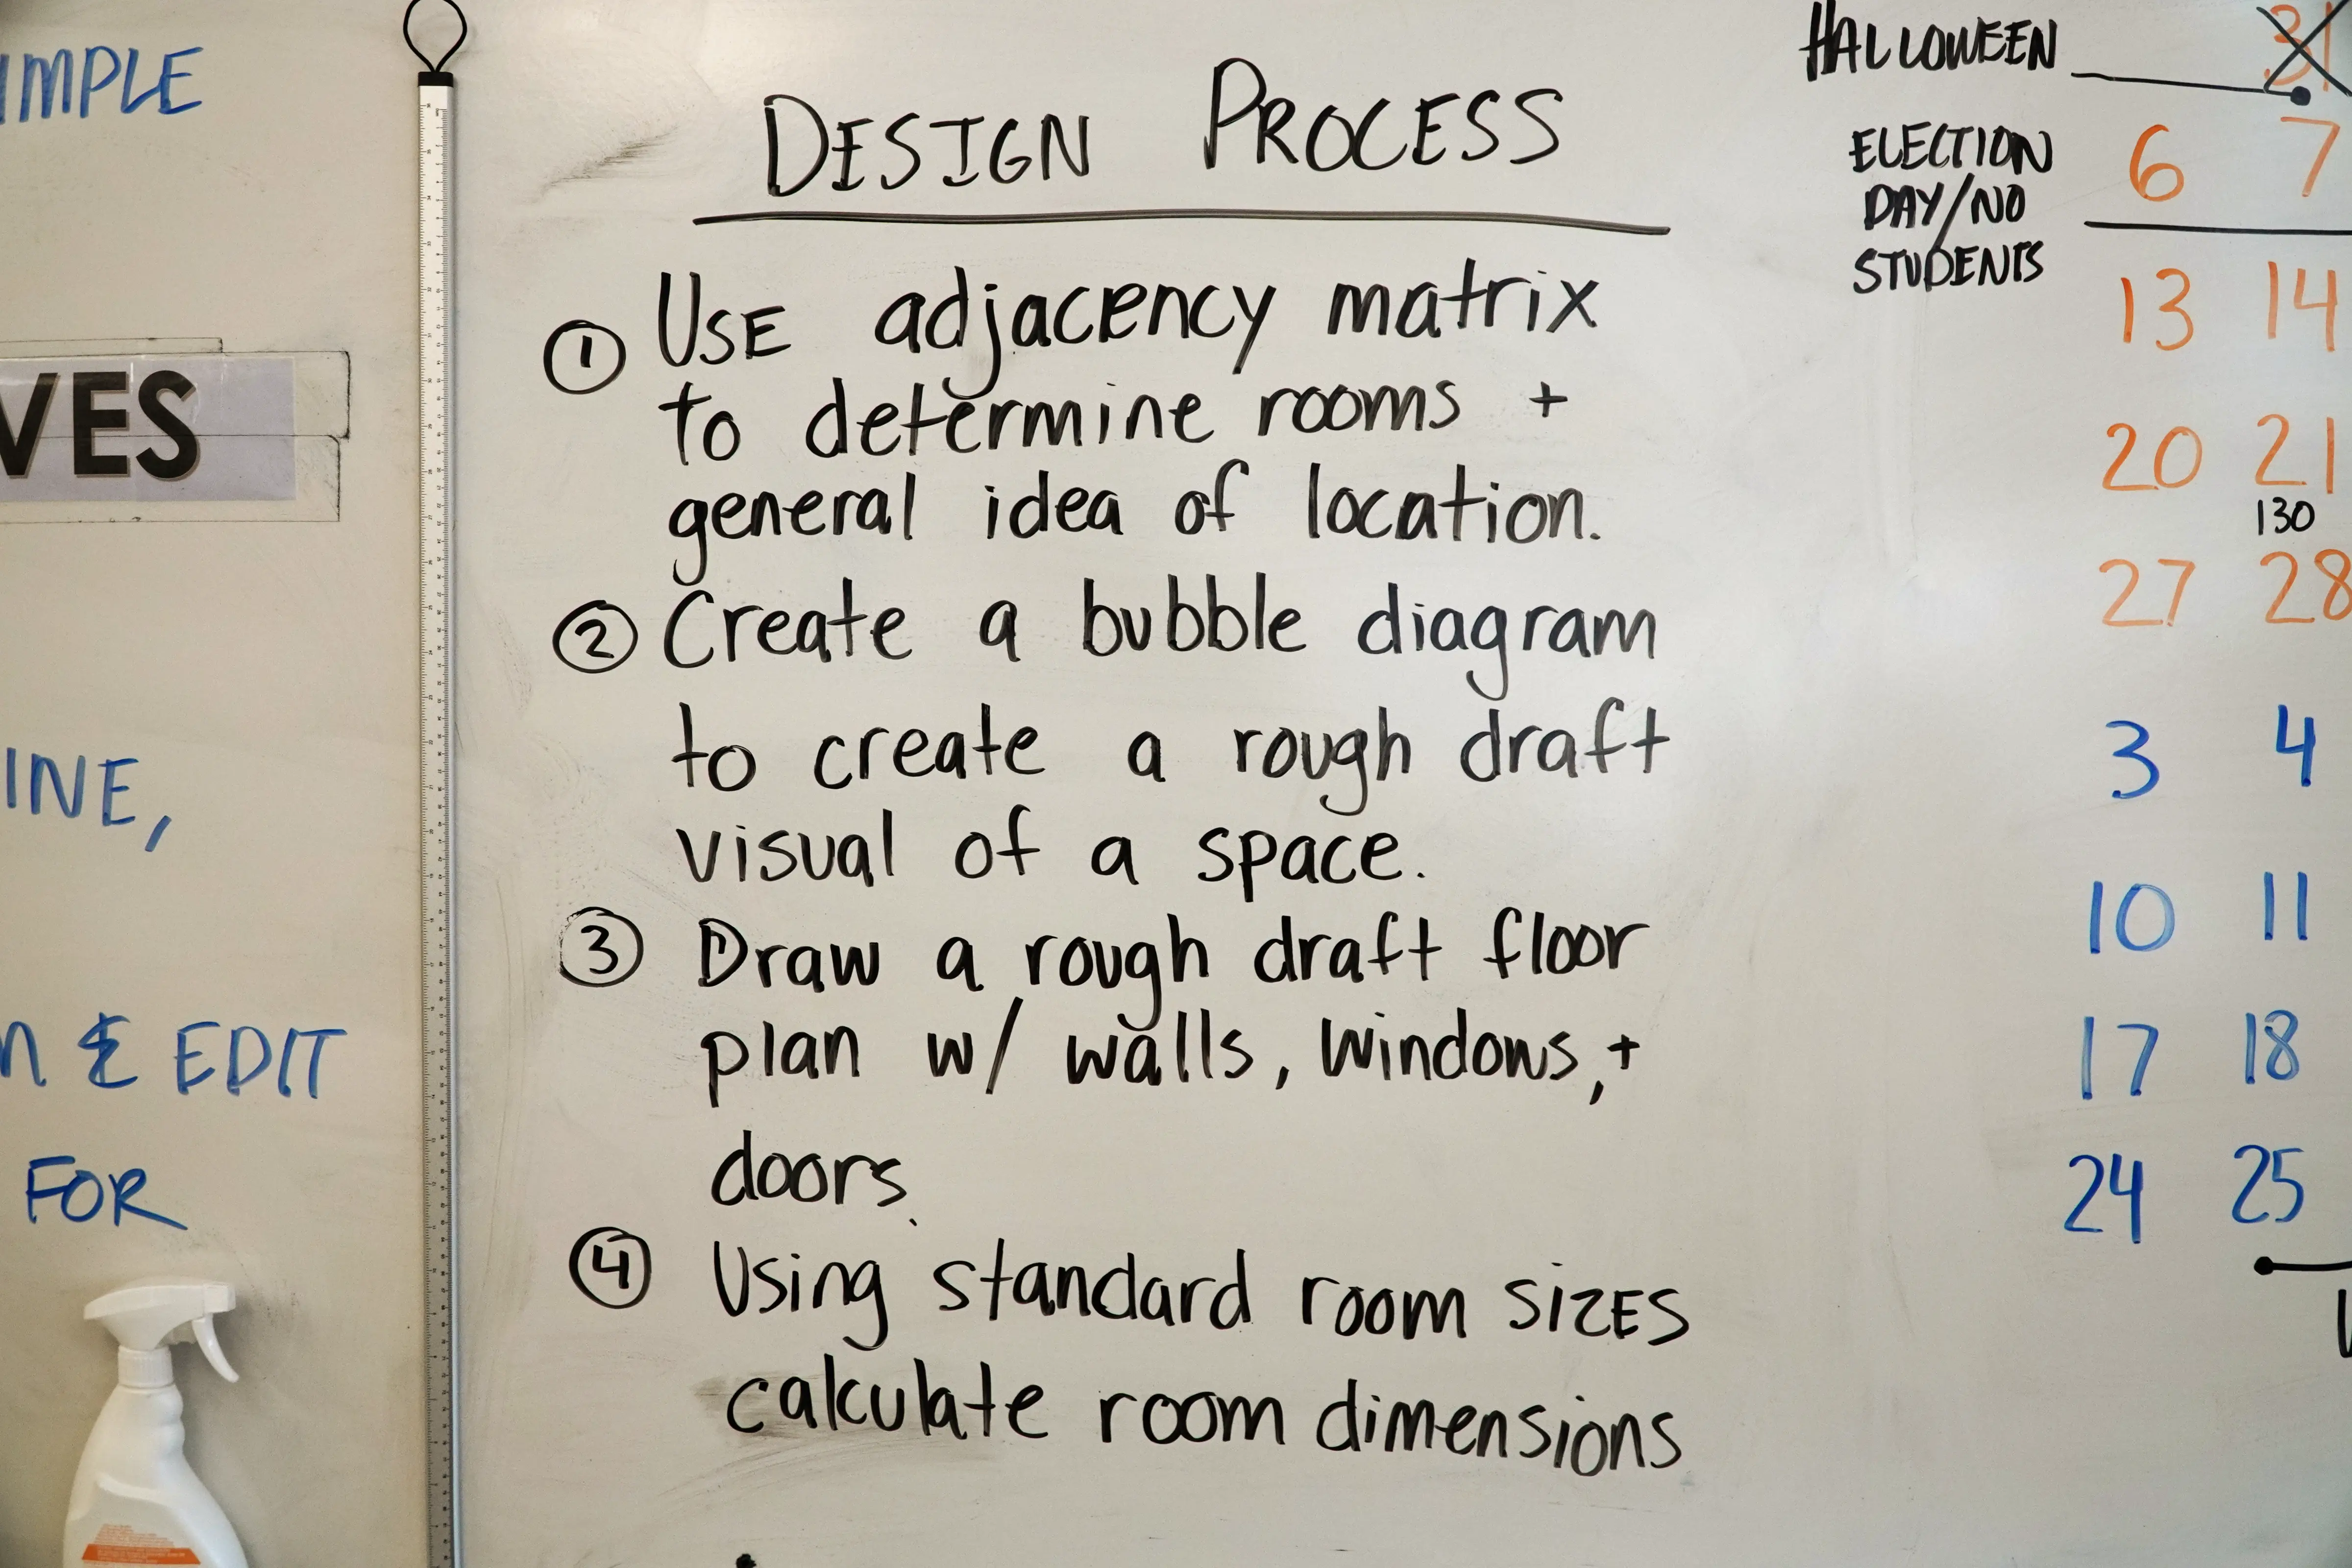 IMPLE
VES
INE,
& EDIT
FOR
DESIGN PROCESS
① USE adjacency matrix
to determine rooms +
general idea of location.
② Create a bubble diagram
to create a rough draft
visual of a space.
③ Draw a rough draft floor
plan w/ walls, windows, +
doors.
④ Using standard room sizes
calculate room dimensions
HALLOWEEN 31
ELECTION
DAY/NO
STUDENTS
6 7
13 14
20 21
130
27 28
3 4
10 11
17 18
24 25